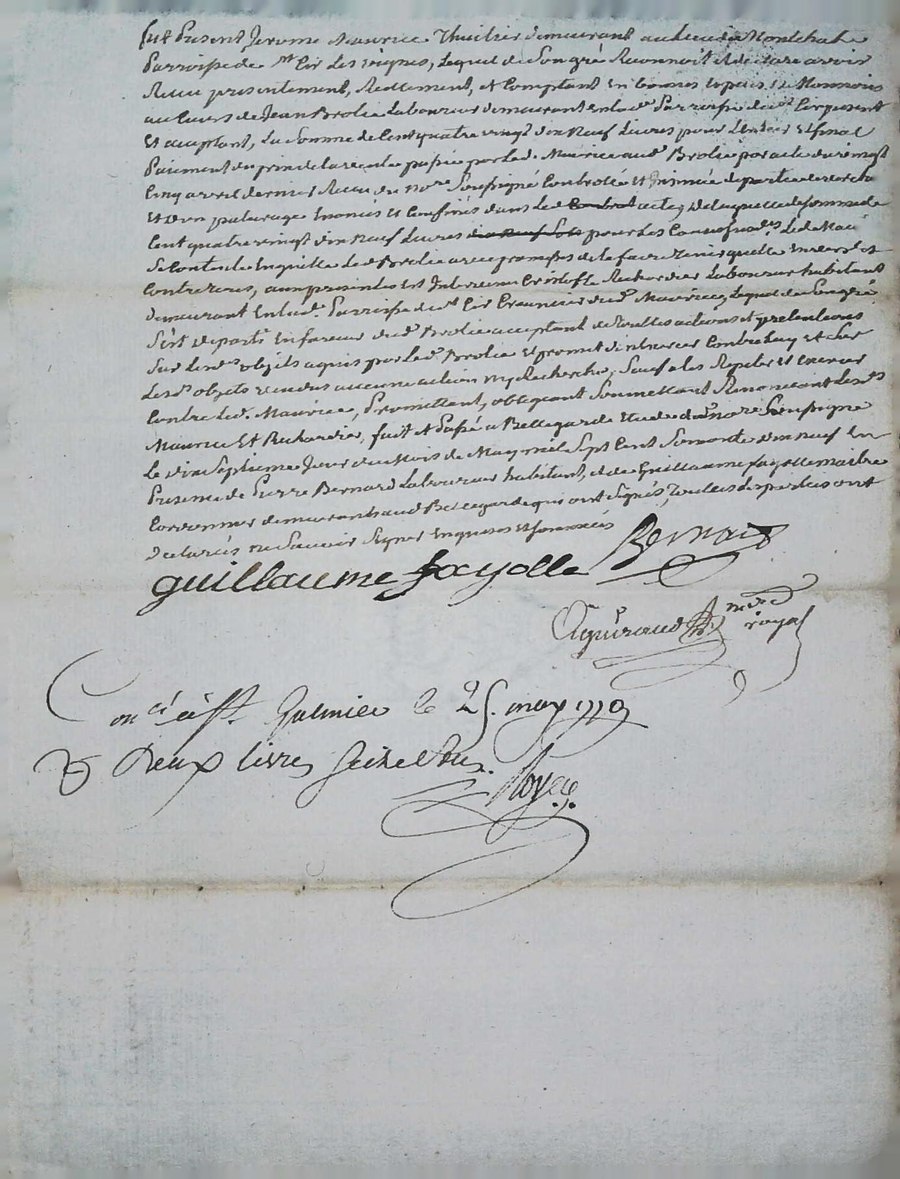 fut Present Jerome Maurice Thuilier demeurant au lieu de Montchal
Parroisse de St Cir les vignes, Lequel de Son gré Reconnoit et declare avoir
Reçu presentement, Reellement, et Comptant en bonnes Especes de Monnoies
au Cours de Jean Brolie Laboureur demeurant en lad. Parroisse de St Cir present
et acceptant, La Somme de Cent quatre vingt dix Neuf Livres pour Lentier et final
Paiement du prix de la vente passée par led. Maurice aud. Brolie par acte du vingt
Cinq avril dernier Recu du nore Soussigné Controllé et Insinué de partie de
et d'un paturage Enoncés et Confinés dans led. acte, De laquelle de Somme de
Cent quatre vingt dix Neuf Livres pour les Causes susd. Led. Mau
Se Contente En quitte led. Brolie avec promesse de le faire tenir quitte Envers et
Contre tous, aux presentes Est Intervenu Cristofle Rechardier Laboureur habitant
demeurant En lad. Parroisse de St Cir Creancier dud. Maurice, Lequel de Son gré
S'est departi En faveur dud. Brolie acceptant de touttes actions et pretentions
Sur lesd. objets aquis par led. Brolie et promet d'exercer Contre luy et Sur
Lesd. objets vendus aucune action ny Recherche, Sauf a les Repeter et exercer
Contre led. Maurice, Promettant, obligeant Soumettant Renoncant Lesds
Maurice Et Rechardier, fait et Passé a Bellegarde Etude du nore Soussigné
Le dix Septieme Jour du Mois de May mil Sept Cent Soixante dix neuf En
Presence de Pierre Bernard Laboureur habitant, et de Guillaume fayolle maitre
Cordonnier demeurant aud. Bellegarde qui ont Signés, Touttes des parties ont
declarés ne Savoir Signer Enquises et Sommées
guillaume fayolle Bernard
royal
Con.lé a St. Galmier le 25. may 1779
R deux livres Seize Sous.